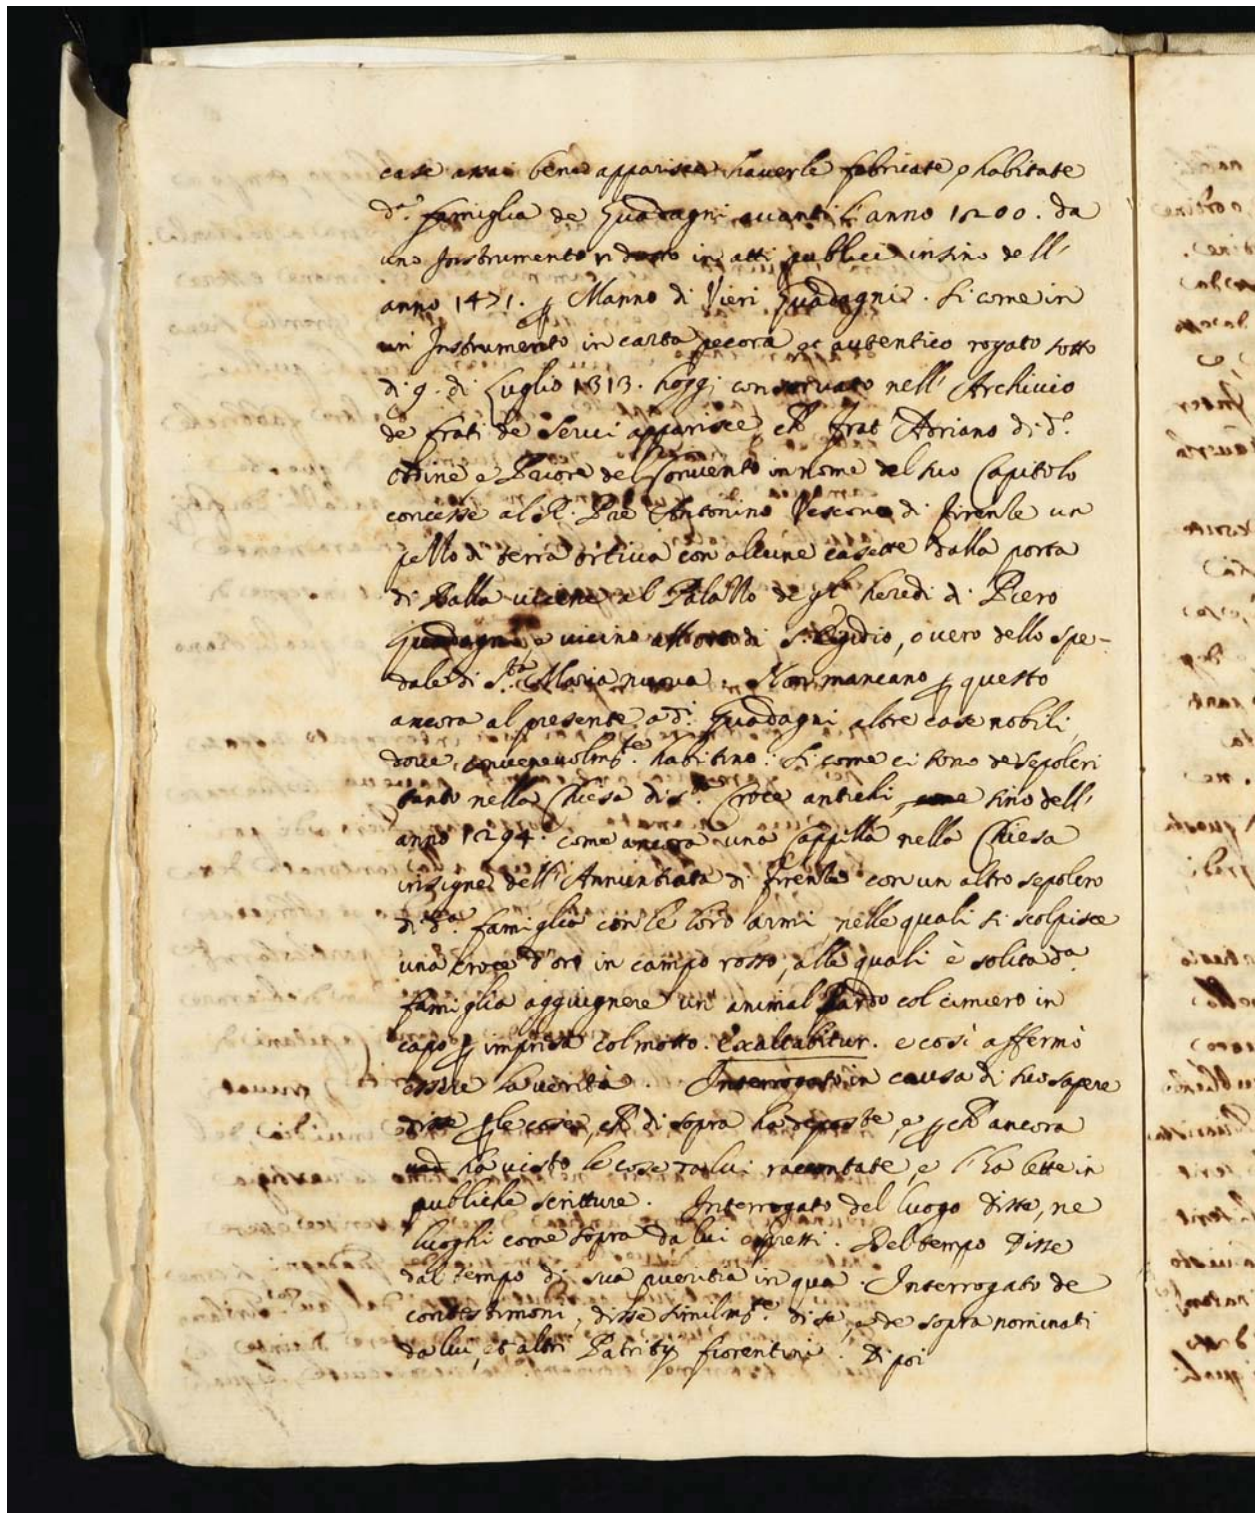 case assai bene apparisce haverle fabricate, e habitate
d.ª famiglia de Guadagni avanti l'anno 1200. da
uno Instrumento ridotto in atti publici insino dell'
anno 1471. p Manno di Vieri Guadagni. Si come in
un Instrumento in carta pecora et autentico rogato sotto
di 9. di Luglio 1313. hoggi conservato nell'Archivio
de frati de Servi apparisce, ch Frat Adriano di d.º
ordine e Priore del Convento in nome del suo Capitolo
concesse al R. Pre Antonino Vescovo di Firenze un
pezzo di terra ortiva con alcune casette dalla porta
di Balla vicine al Palazzo degl' heredi di Piero
Guadagni, e vicino all'orto di S. Egidio, overo dello spe-
dale di S.ta Maria nuova. Non mancano p questo
ancora al presente a d.i Guadagni altre case nobili,
dove convenevolm.te habitino. Si come ci sono de sepolcri
tanto nella Chiesa di S.ta Croce antichi, sino dell'
anno 1294. come ancora una Cappella nella Chiesa
insigne dell'Annuntiata di Firenze con un altro sepolcro
di d.ª famiglia con le loro armi nelle quali si scolpisce
una croce d'oro in campo rosso, alle quali è solita d.ª
famiglia aggiugnere un animal Pardo col cimiero in
capo p impresa col motto. Exaltabitur. e così affermò
essere la verità. Interrogato in causa di suo sapere
disse p le cose, ch di sopra ha deposte, e p ch ancora
ha visto le cose da lui raccontate, e l'ha lette in
publiche scritture. Interrogato del luogo disse, ne
luoghi come sopra da lui espressi. Del tempo disse
dal tempo di sua pueritia in qua. Interrogato de
contestimoni, disse similm.te di se, e de sopra nominati
da lui, et altri Patritij fiorentini. Di poi